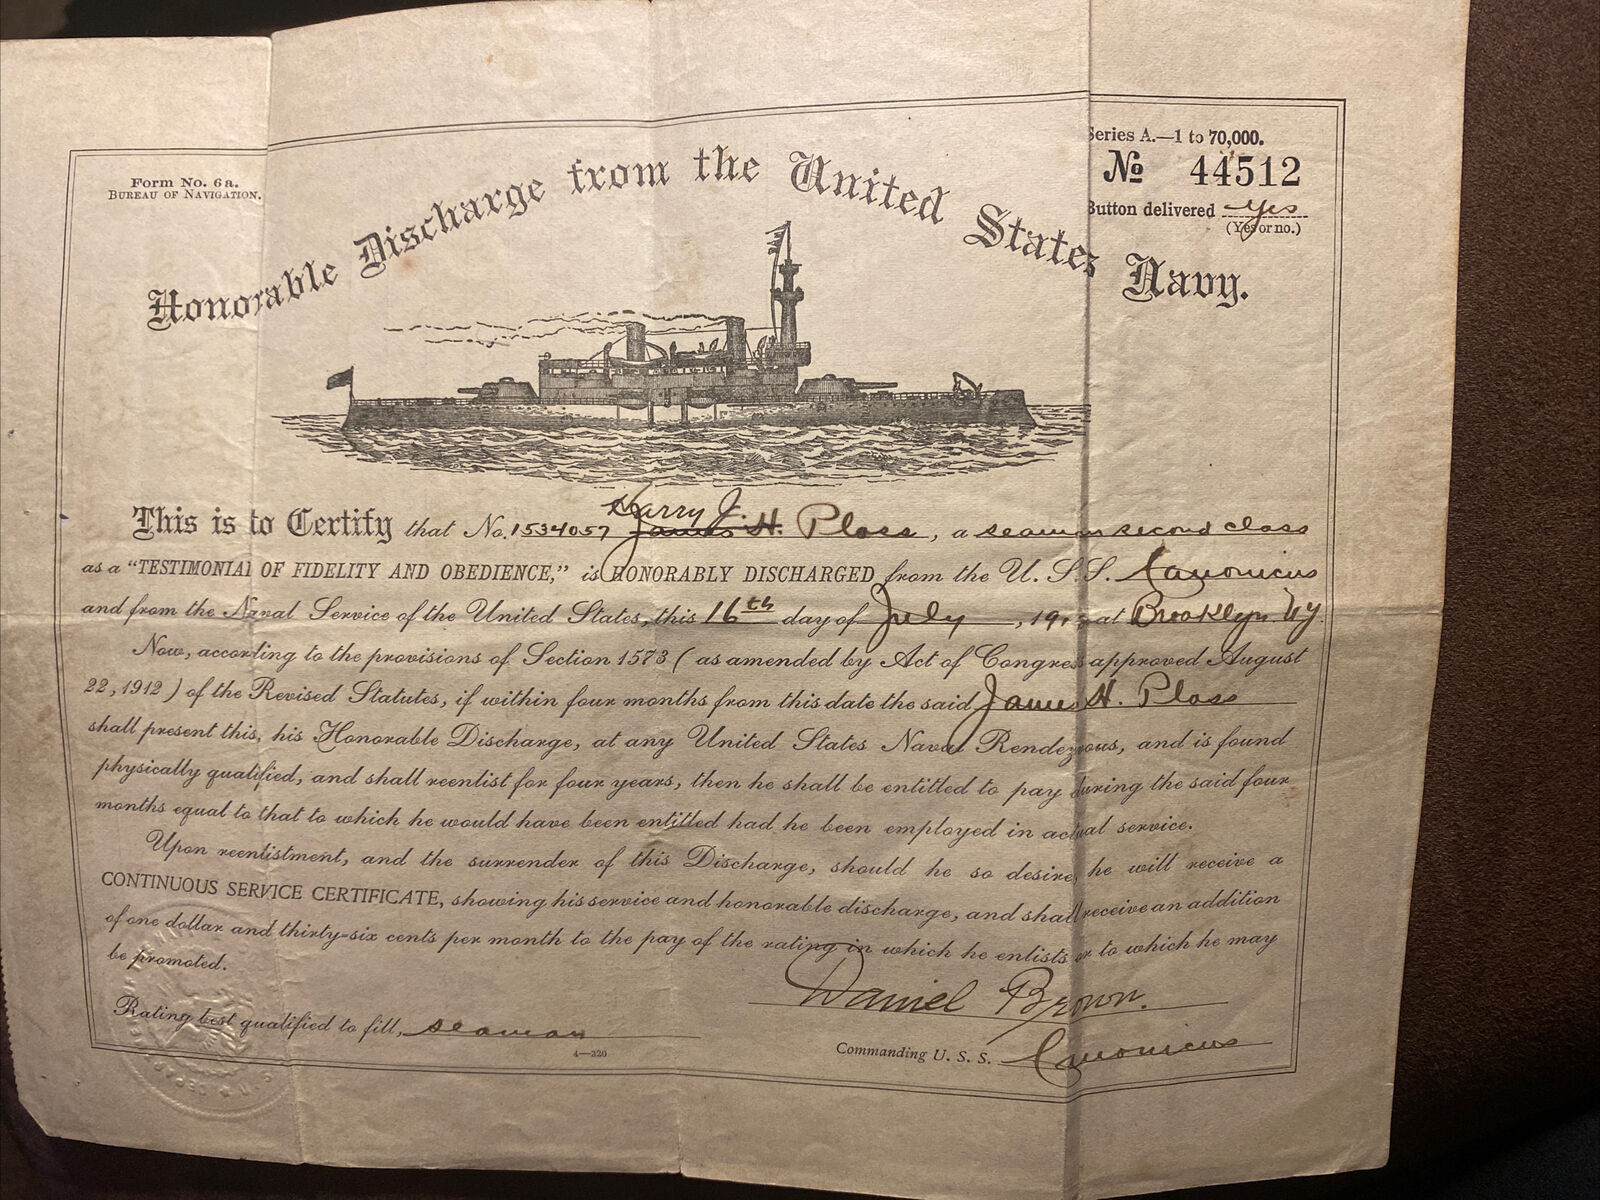 Series A.—1 to 70,000.
Form No. 6a.
BUREAU OF NAVIGATION.
No 44512
Button delivered yes
(Yes or no.)
Honorable Discharge from the United States Navy.
Harry J.
This is to Certify that No. 1534057 James H. Ploss, a seaman second class
as a "TESTIMONIAL OF FIDELITY AND OBEDIENCE," is HONORABLY DISCHARGED from the U. S. S. Canonicus
and from the Naval Service of the United States, this 16th day of July, 191 at Brooklyn NY.
Now, according to the provisions of Section 1573 (as amended by Act of Congress approved August
22, 1912) of the Revised Statutes, if within four months from this date the said James H. Ploss
shall present this, his Honorable Discharge, at any United States Naval Rendezvous, and is found
physically qualified, and shall reenlist for four years, then he shall be entitled to pay during the said four
months equal to that to which he would have been entitled had he been employed in actual service.
Upon reenlistment, and the surrender of this Discharge, should he so desire, he will receive a
CONTINUOUS SERVICE CERTIFICATE, showing his service and honorable discharge, and shall receive an addition
of one dollar and thirty-six cents per month to the pay of the rating in which he enlists or to which he may
be promoted.
Daniel Brown.
Rating best qualified to fill, seaman
4—320
Commanding U. S. S. Canonicus